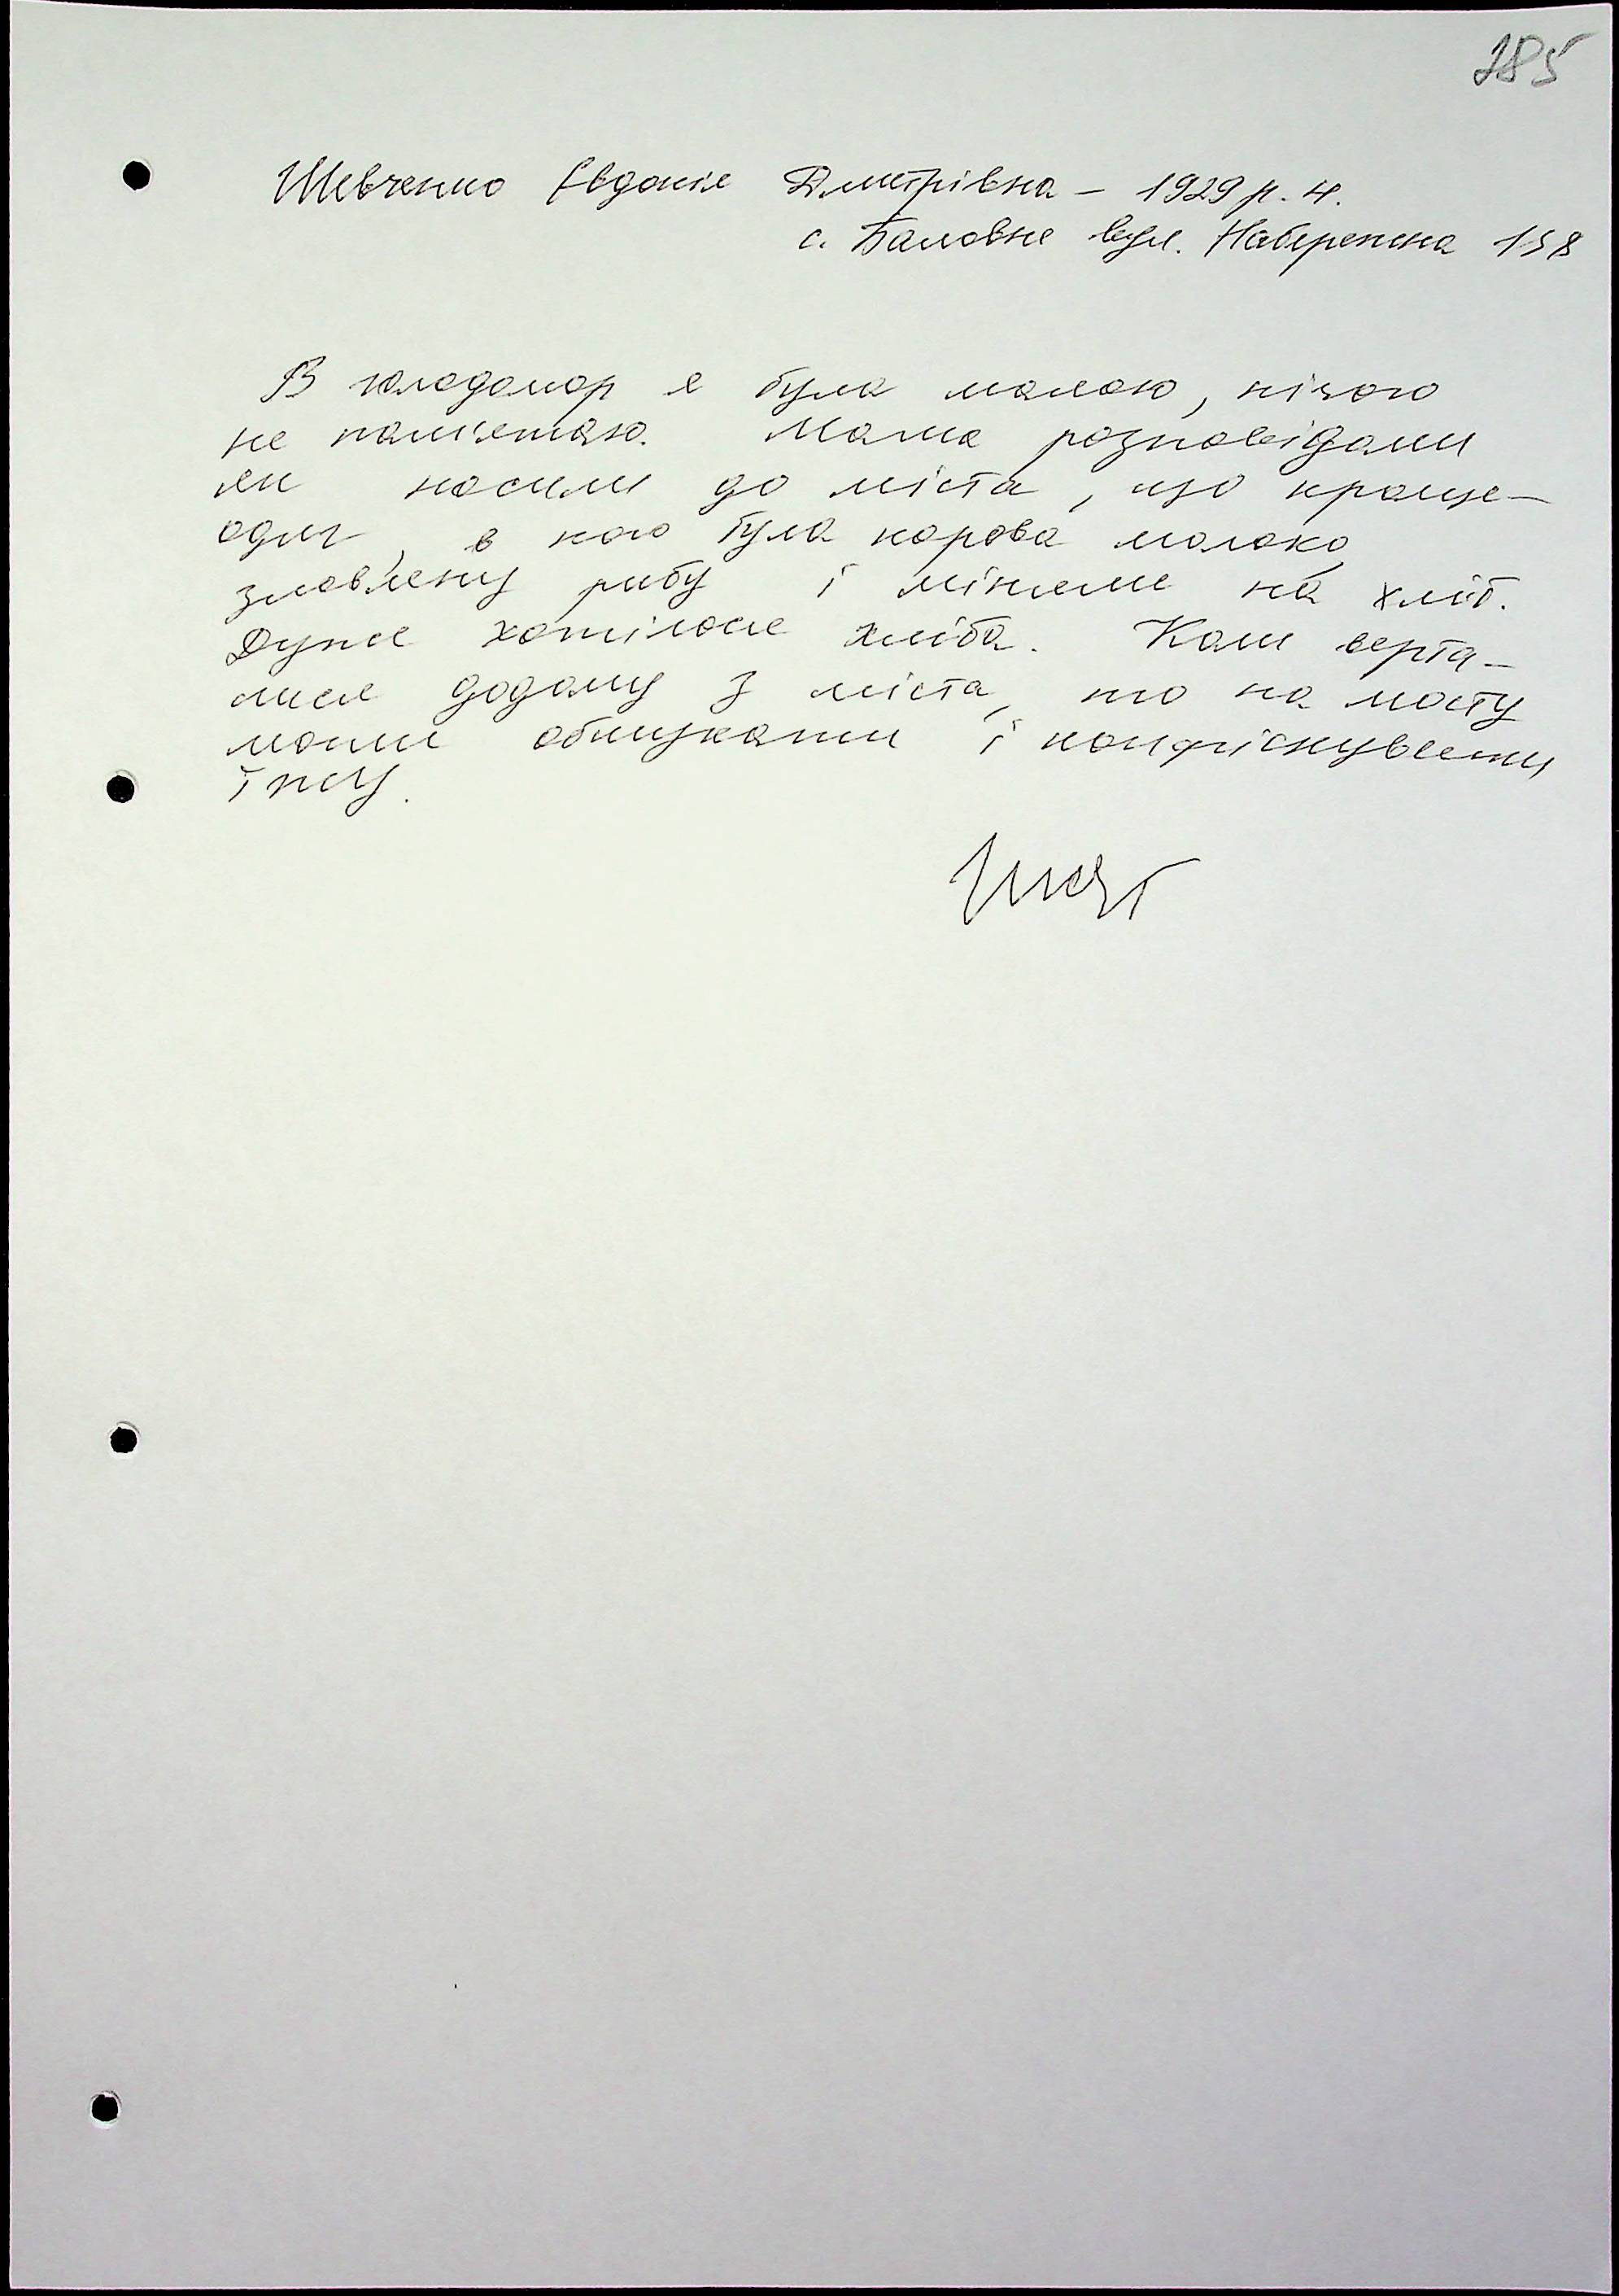 285
Шевченко Євдокія Дмитрівна – 1929 р. н.
с. Баловне вул. Набережна 158
В голодомор я була малою, нічого
не пам'ятаю. Мама розповідали
як носили до міста, що краще –
одяг, в кого була корова молоко,
зловлену рибу і міняли на хліб.
Дуже хотілося хліба. Коли верта-
лися додому з міста, то на мосту
могли обшукати і конфіскувати
їжу.